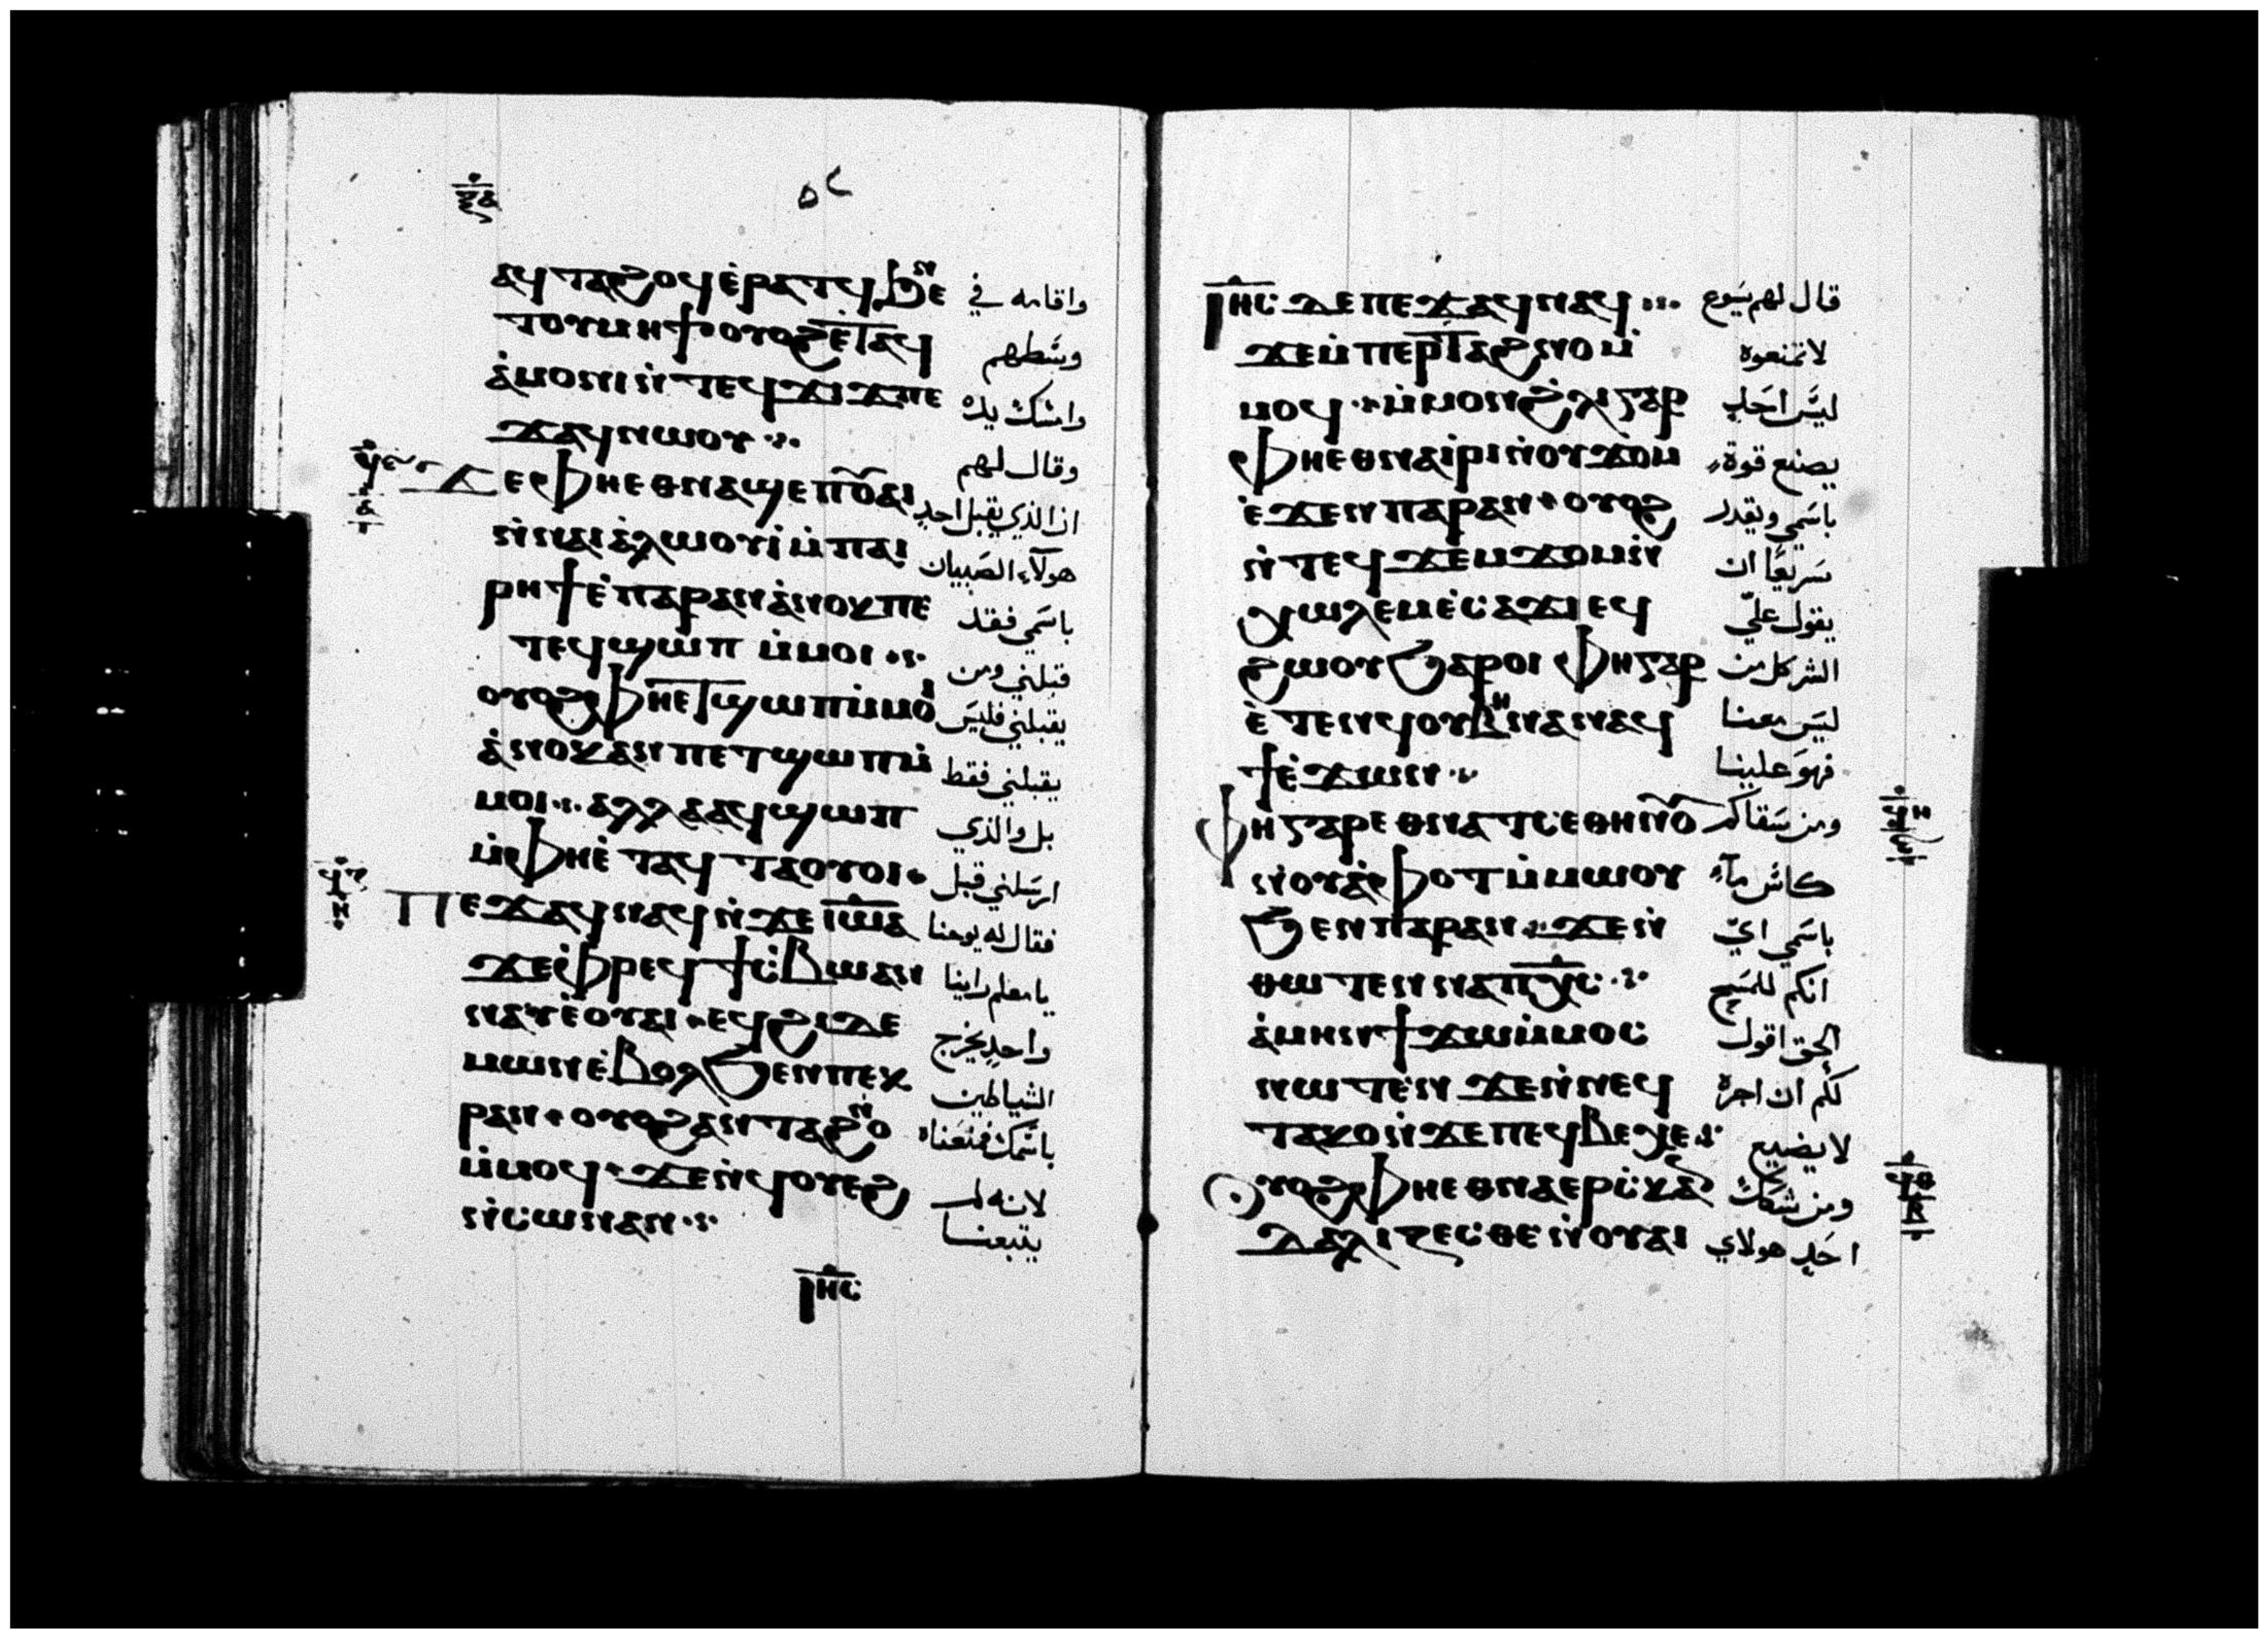 ⲁϥⲧⲁϩⲟϥ ⲉ̀ⲣⲁⲧϥ ϧⲉⲛ
واقامه في
ⲧⲟⲩⲙⲏϯ ⲟⲩⲟϩ ⲉ̀ⲧⲁϥ
وسَطهم
ⲁ̀ⲙⲟⲛⲓ ⲛ̀ⲧⲉϥϫⲓϫ ⲡⲉ
وامسَك يده
ϫⲁϥ ⲛⲱⲟⲩ ⁘
وقال لهم
ϫⲉ ⲫⲏⲉⲑⲛⲁϣⲉⲡ ⲟ̅ⲩⲁⲓ
ان الذي يقبل احد
ⲛ̀ⲛⲁⲓⲁ̀ⲗⲱⲟⲩⲓ̀ ⲙ̀ⲡⲁⲓ
هولآء الصَبيان
ⲣⲏϯ ⲉ̀ⲡⲁⲣⲁⲛ ⲁ̀ⲛⲟⲕ ⲡⲉ
باسَمي فقد
ⲧⲉϥϣⲱⲡ ⲙ̀ⲙⲟⲓ ⁘
قبلني ومن
ⲟⲩⲟϩ ⲫⲏⲉⲧϣⲱⲡ ⲙ̀ⲙⲟⲓ
يقبلني فليسَ
ⲁ̀ⲛⲟⲕ ⲁⲛ ⲡⲉⲧϣⲱⲡ ⲙ̀
يقبلني فقط
ⲙⲟⲓ ⁘ ⲁⲗⲗⲁ ⲁϥϣⲱⲡ
بل والذي
ⲙ̀ⲫⲏⲉ̀ⲧⲁϥⲧⲁⲟⲩⲟⲓ
ارسَلني قبل
ⲡⲉϫⲁϥ ⲛⲁϥ ⲛ̀ϫⲉ ⲓ̅ⲱ̅ⲁ
فقال له يوحنا
ϫⲉ ⲫⲣⲉϥϯⲥ̀ⲃⲱ ⲁⲛ
يا معلم راينا
ⲛⲁⲩ ⲉ̀ⲟⲩⲁⲓ ⲉϥϩⲓ ⲇⲉ
واحد يخرج
ⲙⲱⲛ ⲉ̀ⲃⲟⲗ ϧⲉⲛ ⲡⲉⲕ
الشياطين
ⲣⲁⲛ ⲟⲩⲟϩ ⲁⲛⲧⲁϩⲛⲟ
باسَمك فمنعَناه
ⲙ̀ⲙⲟϥ ϫⲉ ⲛ̀ϥⲟⲩⲉϩ
لانه لم
ⲛ̀ⲥⲱⲛ ⲁⲛ ⁘
يتبعنا
ⲓⲏ̅ⲥ̅
ⲓⲏ̅ⲥ̅ ⲇⲉ ⲡⲉϫⲁϥ ⲛⲁϥ ⁘
قال لهم يسَوع
ϫⲉ ⲙ̀ⲡⲉⲣⲧⲁϩⲛⲟ ⲙ̀
لا تمنعوه
ⲙⲟϥ ⲙ̀ⲙⲟⲛ ϩⲗⲓ ⲅⲁⲣ
ليسَ احَد
ⲫⲏⲉⲑⲛⲁⲓ̀ⲣⲓ ⲛ̀ⲟⲩϫⲟⲙ
يصنع قوة
ⲉ̀ϫⲉⲛ ⲡⲁⲣⲁⲛ ⲟⲩⲟϩ
باسَمي ويقدر
ⲛ̀ⲧⲉϥϫⲉⲙϫⲟⲙ ⲛ̀
سَريعًا ان
ⲭⲱⲗⲉⲙ ⲉ̀ⲥⲁϫⲓ ⲉϥ
يقول عليّ
ϩⲱⲟⲩ ϧⲁⲣⲟⲓ ⲫⲏ ⲅⲁⲣ
الشر كل من
ⲉ̀ⲧⲉⲛϥⲟⲩⲃⲏⲛ ⲁⲛ ⲁϥ
ليسَ معنا
ϯ ⲉ̀ϫⲱⲛ ⁘
فهوَ علينا
ⲫⲏ ⲅⲁⲣ ⲉⲑⲛⲁⲧⲥⲉ ⲑⲏⲛⲟⲩ
ومن سَقاكم
ⲛ̀ⲟⲩⲁ̀ⲫⲟⲧ ⲙ̀ⲙⲱⲟⲩ
كاسَ مآء
ϧⲉⲛ ⲡⲁⲣⲁⲛ ϫⲉ ⲛ̀
باسَمي ايّ
ⲑⲱⲧⲉⲛ ⲛⲁ ⲡⲭ̅ⲥ̅ ⁘
انكم للمسَيح
ⲁ̀ⲙⲏⲛ ϯϫⲱ ⲙ̀ⲙⲟⲥ
الحق اقول
ⲛⲱⲧⲉⲛ ϫⲉ ⲛ̀ⲛⲉϥ
لكم ان اجره
ⲧⲁⲕⲟ ⲛ̀ϫⲉ ⲡⲉϥⲃⲉⲭⲉ ⁘
لا يضيع
ⲟⲩⲟϩ ⲫⲏⲉⲑⲛⲁⲉⲣⲥ̀ⲕⲁⲛ
ومن شكك
ⲇⲁⲗⲓⲍⲉⲥⲑⲉ ⲛ̀ⲟⲩⲁⲓ
احَد هولاي